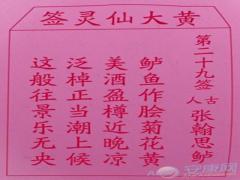 黄大仙灵签
第二十九签
古人
张翰思鲈
鲈鱼作脍菊花黄
美酒盈樽近晚凉
泛棹正当潮上候
这般往景乐无央